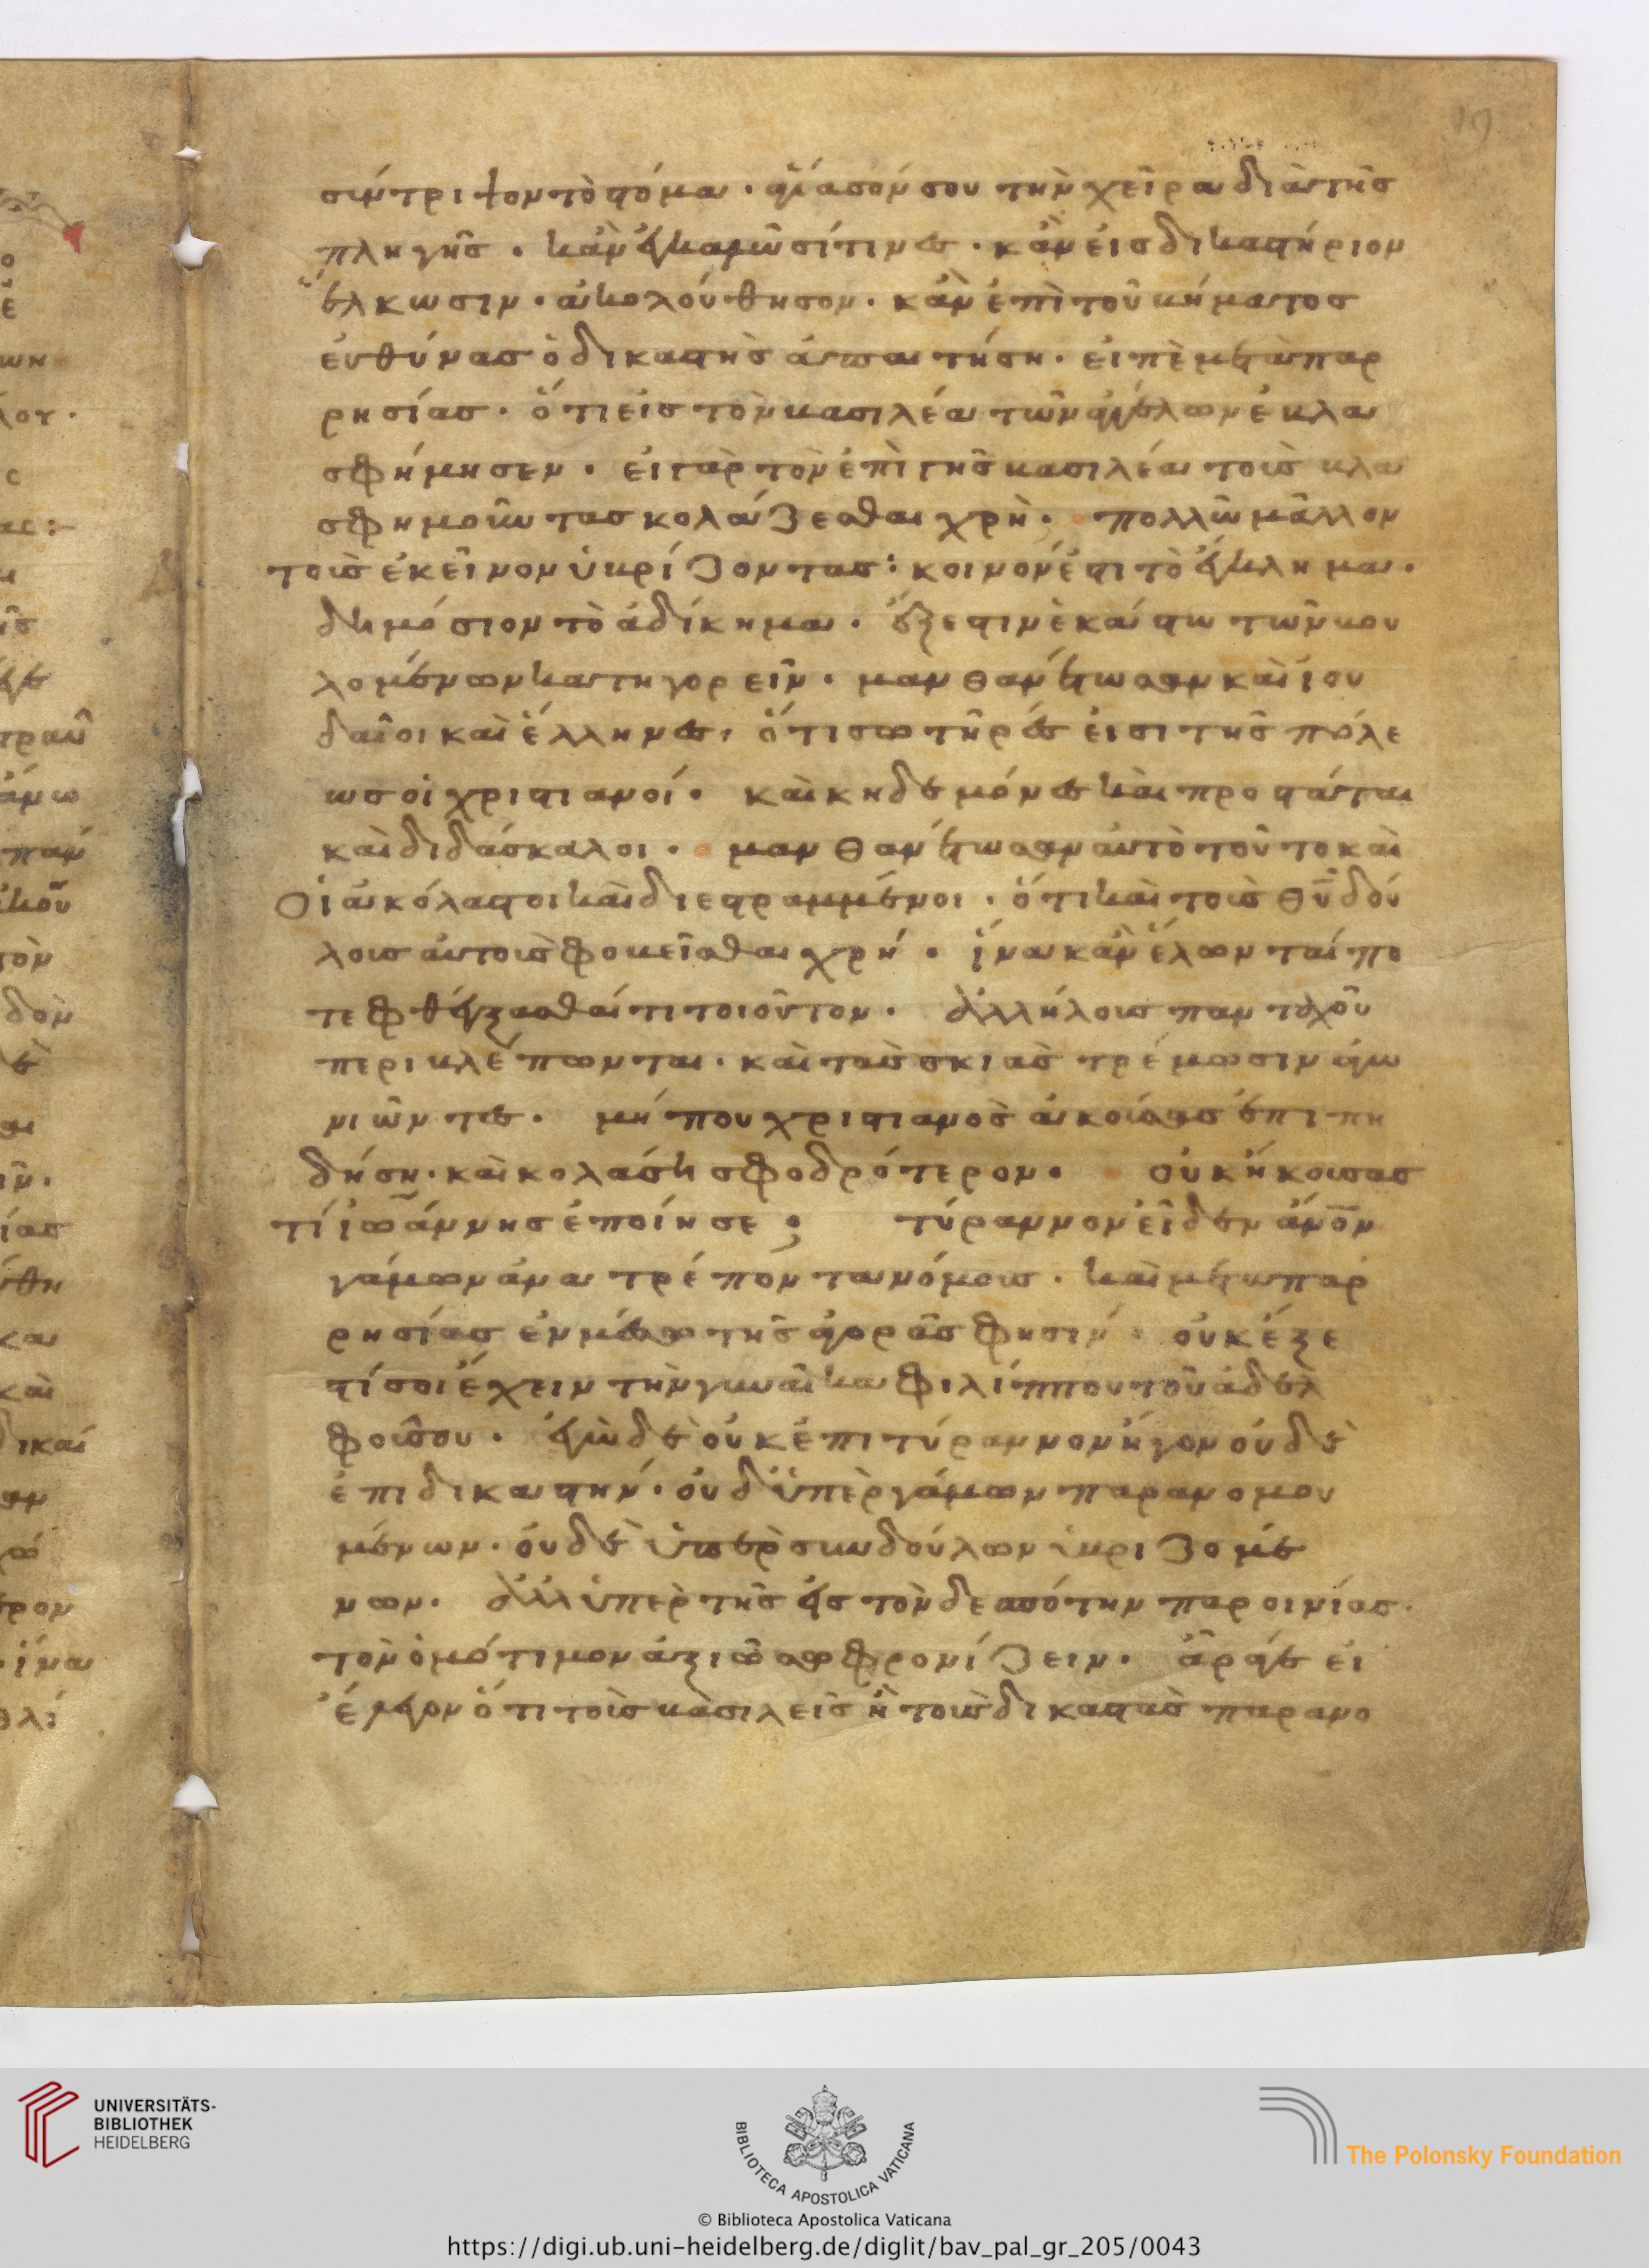 19
σύντριψον τὸ στόμα· ἁγίασόν σου τὴν χεῖρα διὰ τῆς
πληγῆς· κἂν ἐγκαλῶσί τινες· κἂν εἰς δικαστήριον
ἕλκωσιν· ἀκολούθησον· κἂν ἐπὶ τοῦ βήματος
εὐθύνας ὁ δικαστὴς ἀπαιτήση· εἰπὲ μετὰ παρ
ρησίας· ὅτι εἰς τὸν βασιλέα τῶν ἀγγέλων ἐβλα
σφήμησεν· εἰ γὰρ τὸν ἐπὶ γῆς βασιλέα τοὺς βλα
σφημοῦντας κολάζεσθαι χρὴ· πολλῶ μᾶλλον
τοὺς ἐκεῖνον ὑβρίζοντας: κοινόν ἐστι τὸ ἔγκλημα·
δημόσιον τὸ ἀδίκημα· ἔξεστιν ἑκάστω τῶν βου
λομένων κατηγορεῖν· μανθανέτωσαν καὶ ἰου
δαῖοι καὶ ἕλληνες, ὅτι σωτῆρές εἰσι τῆς πόλε
ως οἱ χριστιανοί· καὶ κηδεμόνες καὶ προστάται
καὶ διδάσκαλοι· μανθανέτωσαν αὐτὸ τοῦτο καὶ
Οἱ ἀκόλαστοι καὶ διεστραμμένοι· ὅτι καὶ τοὺς θῦ δού
λους αὐτοὺς φοβεῖσθαι χρή· ἵνα κἂν ἕλωνταί πο
τε φθέγξασθαί τι τοιοῦτον· ἀλλήλους πανταχοῦ
περιβλέπωνται· καὶ τὰς σκιὰς τρέμωσιν ἀγω
νιῶντες· μή που χριστιανὸς ἀκούσας ἐπιπη
δήση· καὶ κολάση σφοδρότερον· Οὐκ ἤκουσας
τί ἰωάννης ἐποίησε; τύραννον εἶδεν ἄνον
γάμων ἀνατρέποντα νόμους· καὶ μετὰ παρ
ρησίας ἐν μέσω τῆς ἀγορᾶς φησιν· οὐκ ἔξε
στί σοι ἔχειν τὴν γυναῖκα φιλίππου τοῦ ἀδελ
φοῦ σου· ἐγὼ δὲ οὐκ ἐπι τύραννον ἤγον οὐδὲ
ἐπι δικαστήν· οὐδ' ὑπὲρ γάμων παρανομου
μένων· οὐδὲ ὑπὲρ συνδούλων ὑβριζομέ
νων· ἀλλ' ὑπὲρ τῆς εἰς τὸν δεσπότην παροινίας·
τὸν ὁμότιμον ἀξιῶ σωφρονίζειν· ἆρα γε εἰ
ἔλεγον ὅτι τοὺς βασιλεῖς ἢ τοὺς δικαστὰς παρανο
UNIVERSITÄTS-
BIBLIOTHEK
HEIDELBERG
BIBLIOTECA APOSTOLICA VATICANA
The Polonsky Foundation
© Biblioteca Apostolica Vaticana
https://digi.ub.uni-heidelberg.de/diglit/bav_pal_gr_205/0043